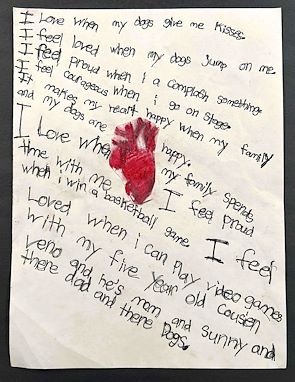 I Love when my dogs give me kisses.
I feel loved when my dogs Jump on me.
I feel Proud when i a complash something
I feel courageous when i go on stage.
It makes my heart happy when my family
and my dogs are happy.
I Love when my family spends
time with me. I feel proud
when i win a basketball game. I feel
Loved when i can play video games
with my five year old cousen
veno and he's mom and sunny and
there dad and there Dogs.